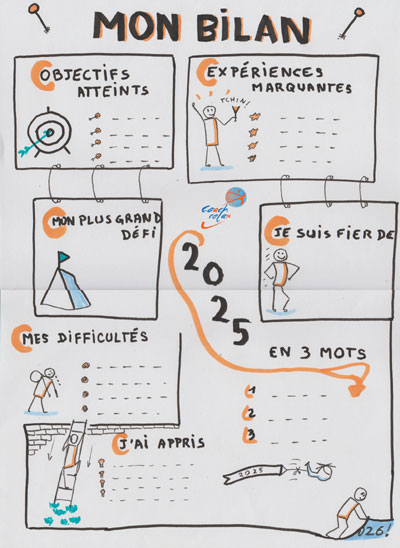 MON BILAN
OBJECTIFS
ATTEINTS
EXPÉRIENCES
MARQUANTES
TCHIN!
MON PLUS GRAND
DÉFI
Coach
relax
JE SUIS FIER DE
2025
MES DIFFICULTÉS
EN 3 MOTS
1
2
3
J'AI APPRIS
2025
026!